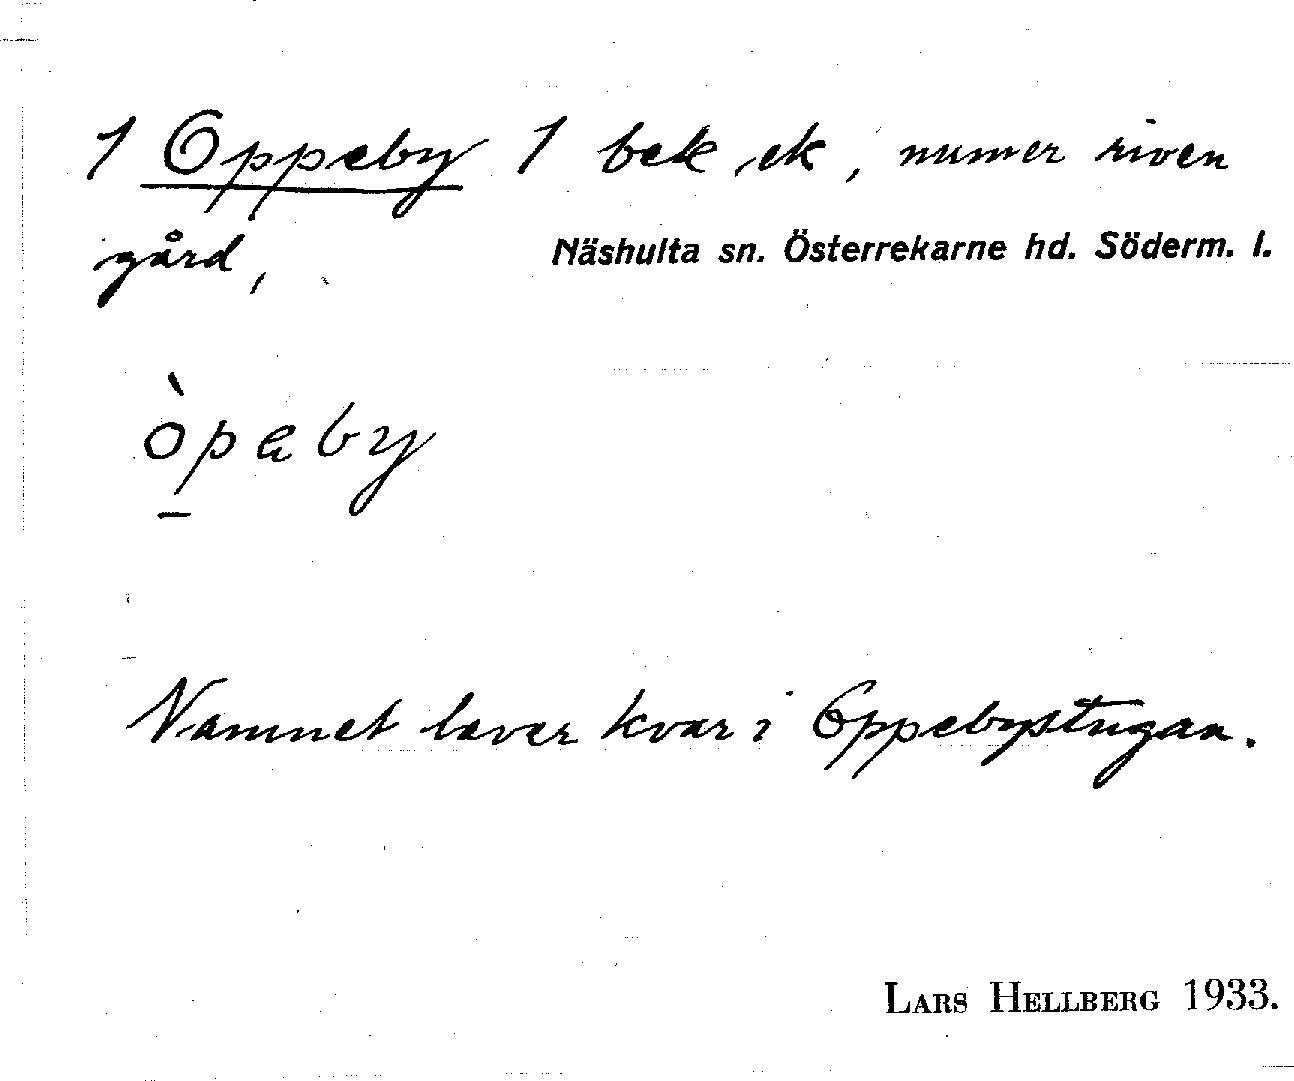 1 Oppeby 1 bek ek, numer riven
gård,
Näshulta sn. Österrekarne hd. Söderm. l.
òpeby
Namnet lever kvar i Oppebystugan.
LARS HELLBERG 1933.